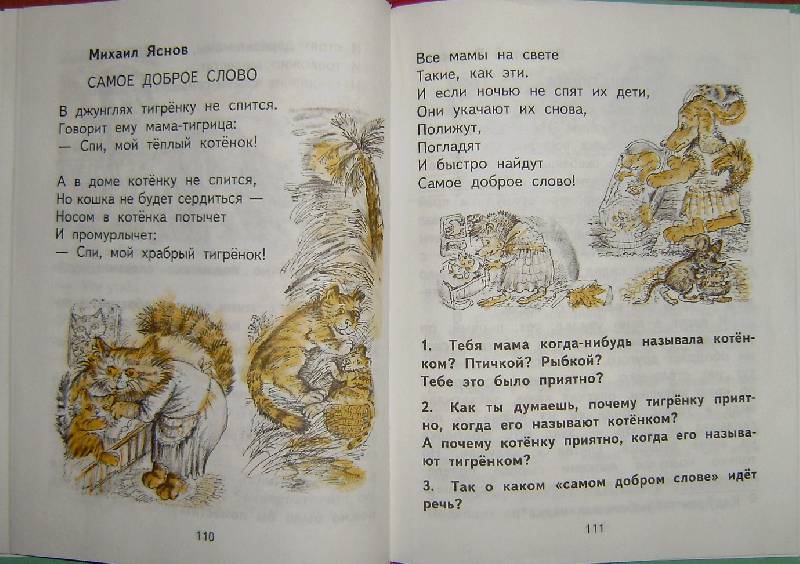 Михаил Яснов
САМОЕ ДОБРОЕ СЛОВО
В джунглях тигрёнку не спится.
Говорит ему мама-тигрица:
— Спи, мой тёплый котёнок!
А в доме котёнку не спится,
Но кошка не будет сердиться —
Носом в котёнка потычет
И промурлычет:
— Спи, мой храбрый тигрёнок!
110
Все мамы на свете
Такие, как эти.
И если ночью не спят их дети,
Они укачают их снова,
Полижут,
Погладят
И быстро найдут
Самое доброе слово!
1. Тебя мама когда-нибудь называла котён-
ком? Птичкой? Рыбкой?
Тебе это было приятно?
2. Как ты думаешь, почему тигрёнку прият-
но, когда его называют котёнком?
А почему котёнку приятно, когда его называ-
ют тигрёнком?
3. Так о каком «самом добром слове» идёт
речь?
111